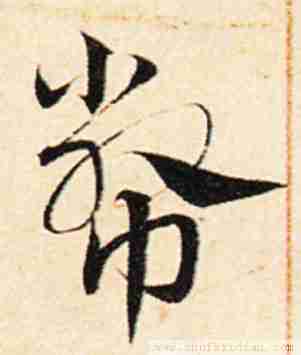 幣
www.shufazidian.com